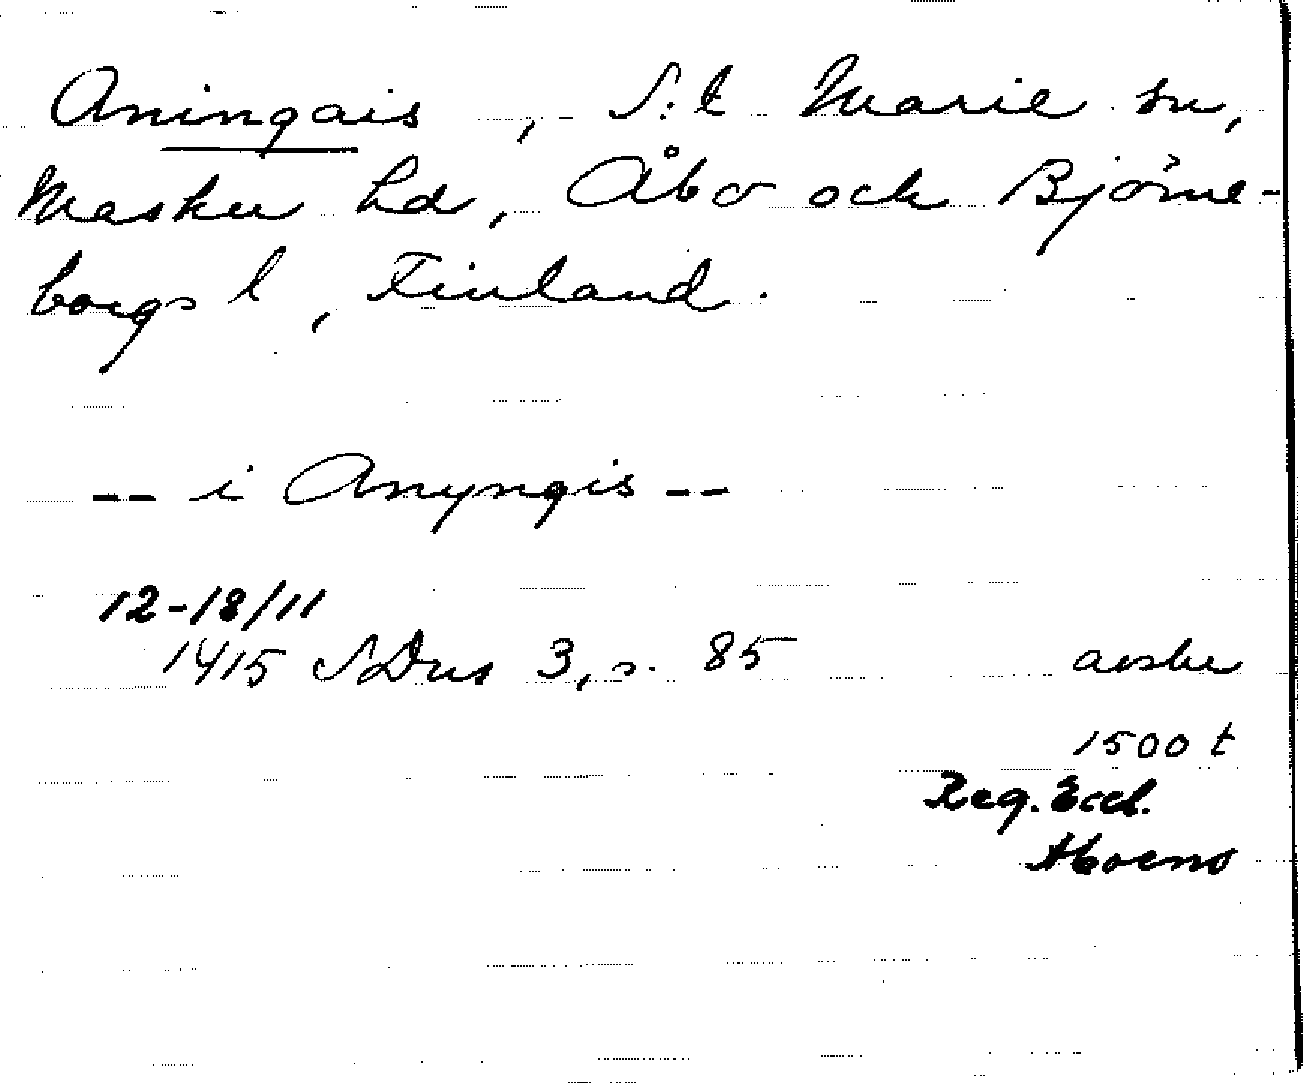 Aningais, S:t Marie sn,
Masku hd, Åbo och Björne-
borgs l, Finland.
-- i Anyngis --
12-18/11
1415 SDns 3, s. 85 avskr
1500 t
Reg. Eccl.
Aboens